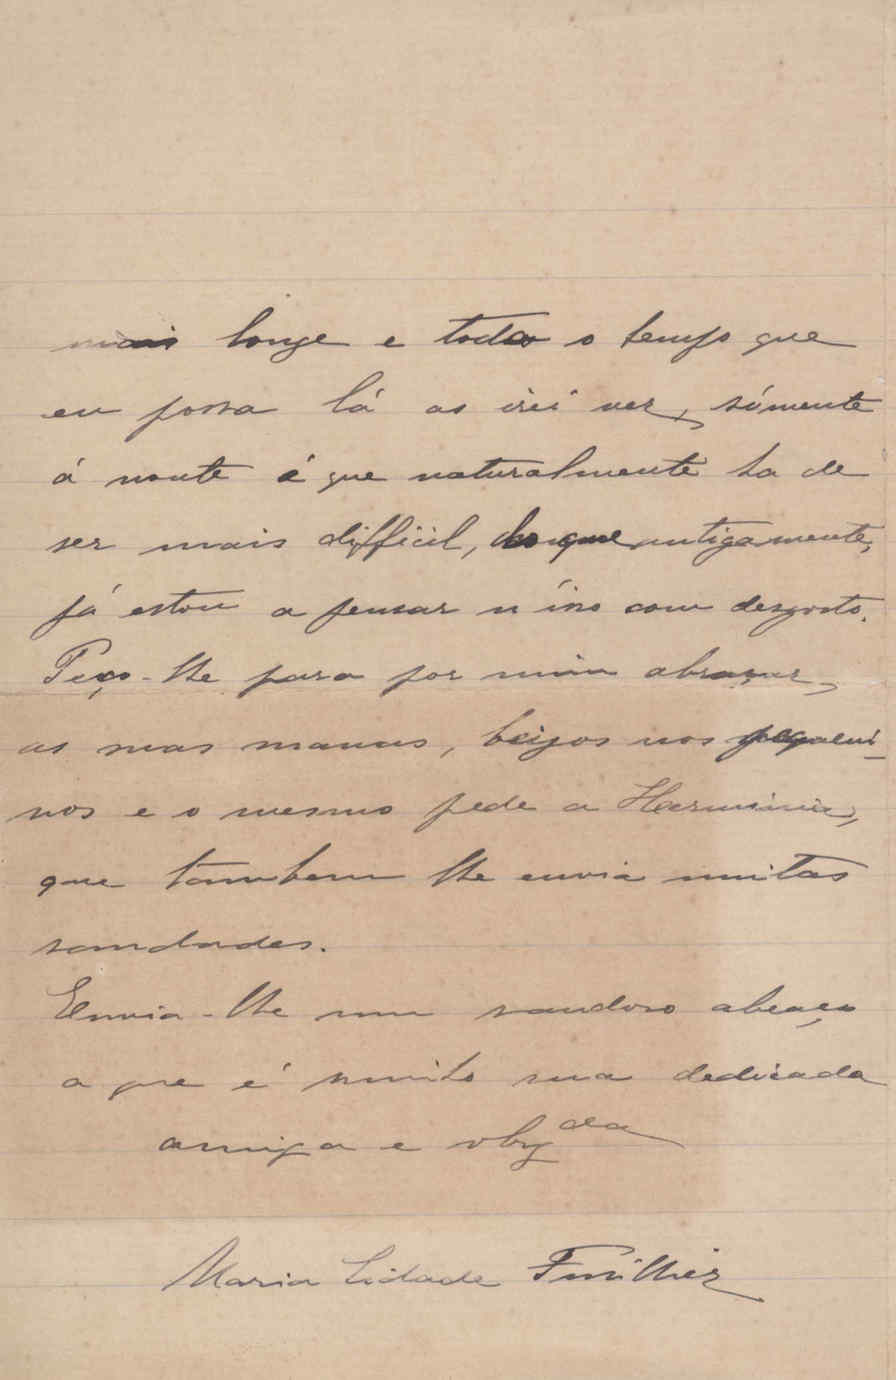 mais longe e todo o tempo que
eu possa lá as irei ver, sómente
á noute é que naturalmente ha de
ser mais difficil, do que antigamente,
já estou a pensar n'isso com desgosto.
Peço-lhe para por mim abraçar,
as suas manas, beijos nos pequeni-
nos e o mesmo pede a Herminia,
que tambem lhe envia muitas
saudades.
Envia-lhe um saudoso abraço
a que é muito sua dedicada
amiga e obgda
Maria Cidade